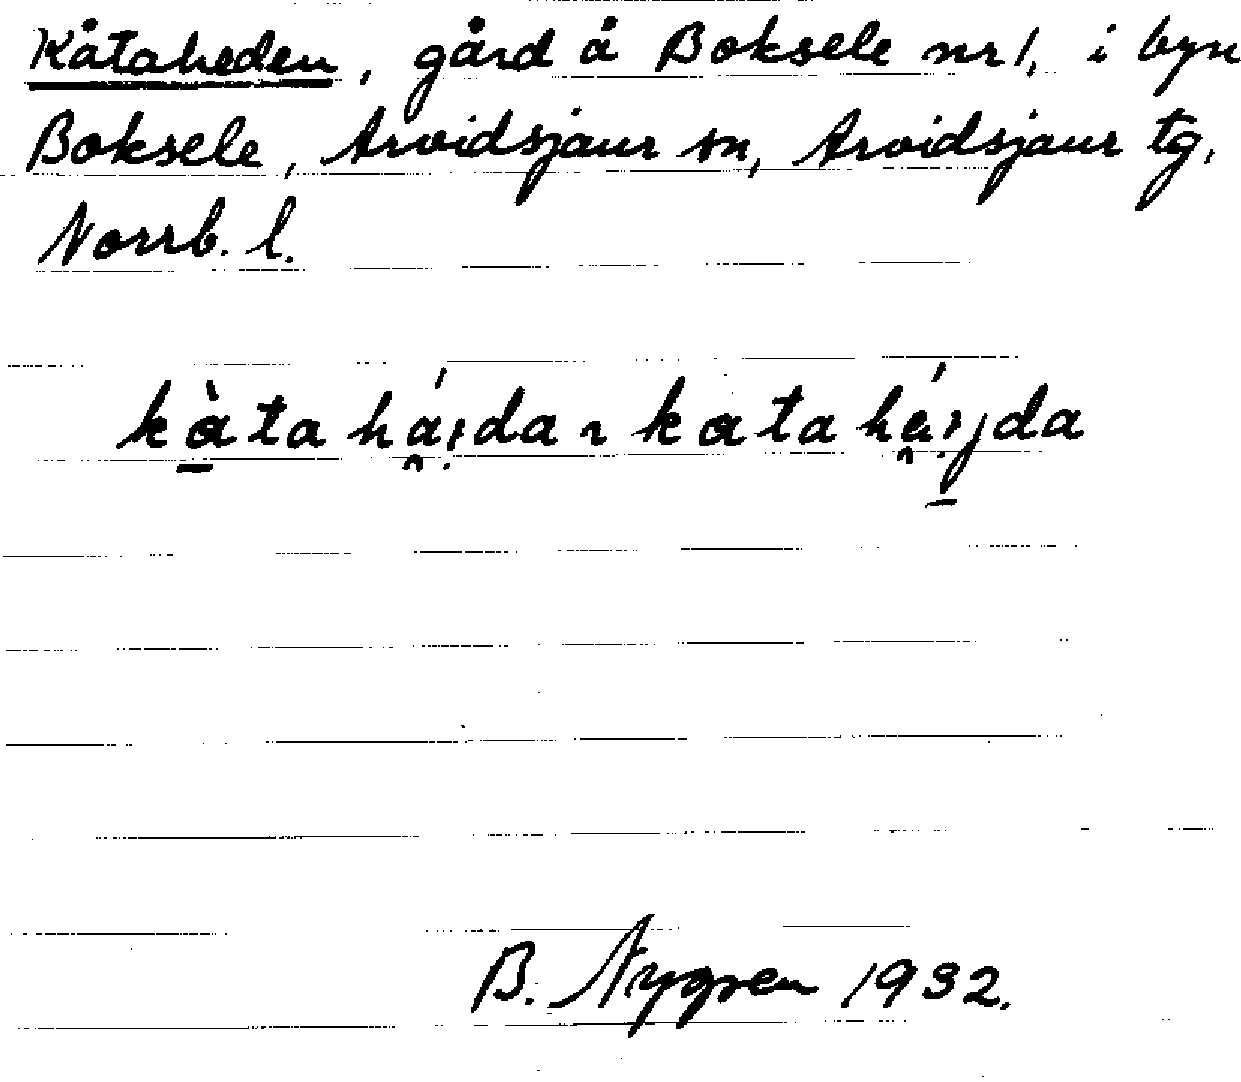 Kåtaheden, gård å Boksele nr 1, i byn
Boksele, Arvidsjaur sn, Arvidsjaur tg,
Norrb. l.
B. Nygren 1932.